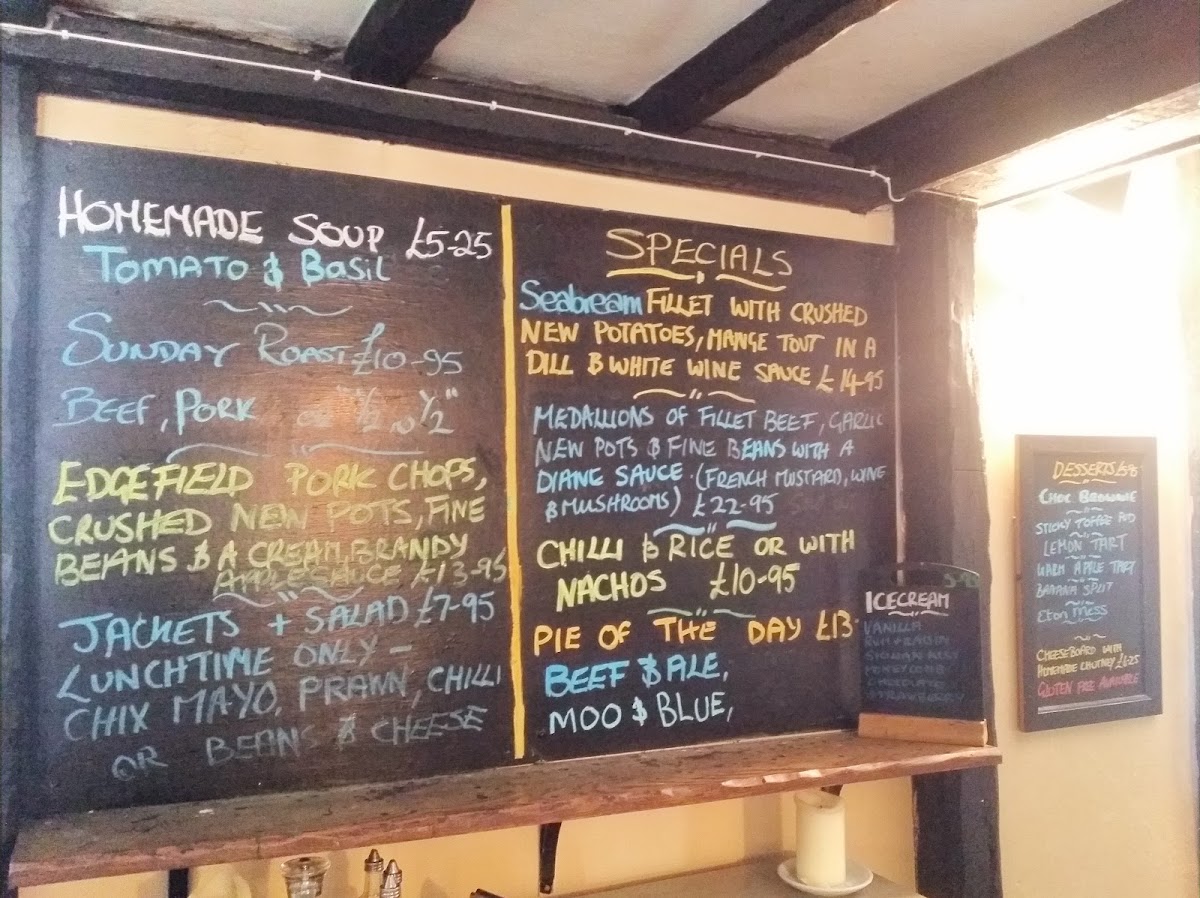 HOMEMADE SOUP £5-25
TOMATO & BASIL
SUNDAY ROAST £10-95
BEEF, PORK or "½ n ½"
EDGEFIELD PORK CHOPS,
CRUSHED NEW POTS, FINE
BEANS & A CREAM, BRANDY
APPLE SAUCE £13-95
JACKETS + SALAD £7-95
LUNCHTIME ONLY -
CHIX MAYO, PRAWN, CHILLI
OR BEANS & CHEESE
SPECIALS
Seabream FILLET WITH CRUSHED
NEW POTATOES, MANGE TOUT IN A
DILL & WHITE WINE SAUCE £14-95
MEDALLIONS OF FILLET BEEF, GARLIC
NEW POTS & FINE BEANS WITH A
DIANE SAUCE (FRENCH MUSTARD, WINE
& MUSHROOMS) £22-95
CHILLI & RICE OR WITH
NACHOS £10-95
PIE OF THE DAY £13-
BEEF & ALE,
MOO & BLUE,
ICECREAM
VANILLA
RUM + RAISIN
HONEYCOMB
CHOCOLATE
STRAWBERRY
DESSERTS
CHOC BROWNIE
STICKY TOFFEE PUD
LEMON TART
WARM APPLE TART
BANANA SPLIT
ETON MESS
CHEESEBOARD WITH
HOMEMADE CHUTNEY £6-25
GLUTEN FREE AVAILABLE